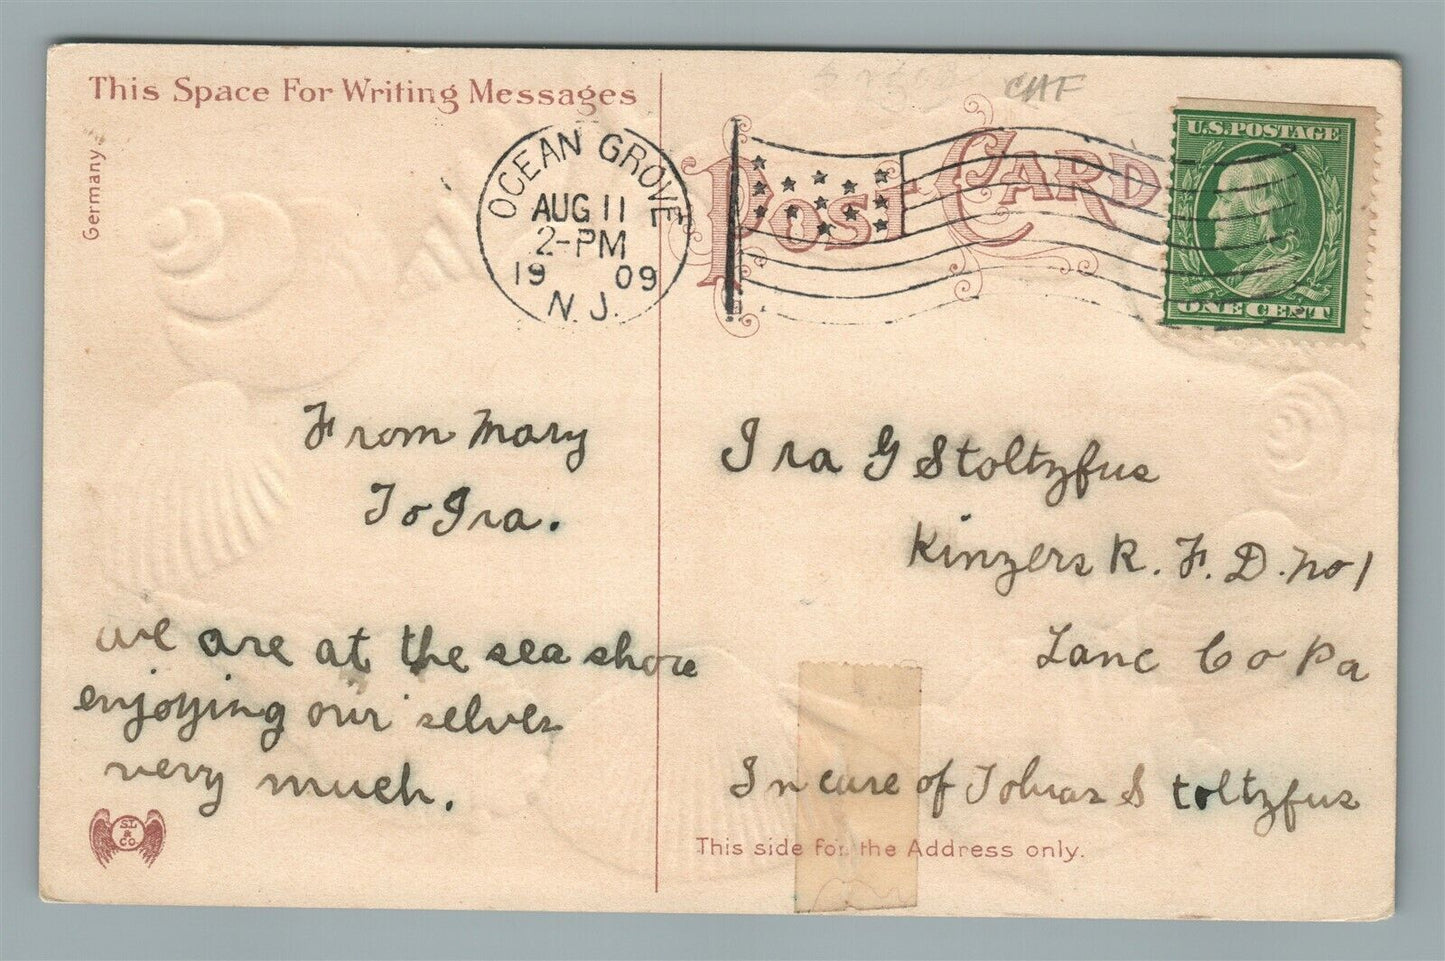 This Space For Writing Messages
Germany
OCEAN GROVE
AUG 11
2-PM
19 09
N.J.
POST CARD
CHF
U.S. POSTAGE
ONE CENT
From Mary
To Ira.
we are at the sea shore
enjoying our selves
very much.
SL
&
CO
Ira G Stoltzfus
Kinzers R. F. D. No 1
Lanc Co Pa
In care of Tobias Stoltzfus
This side for the Address only.